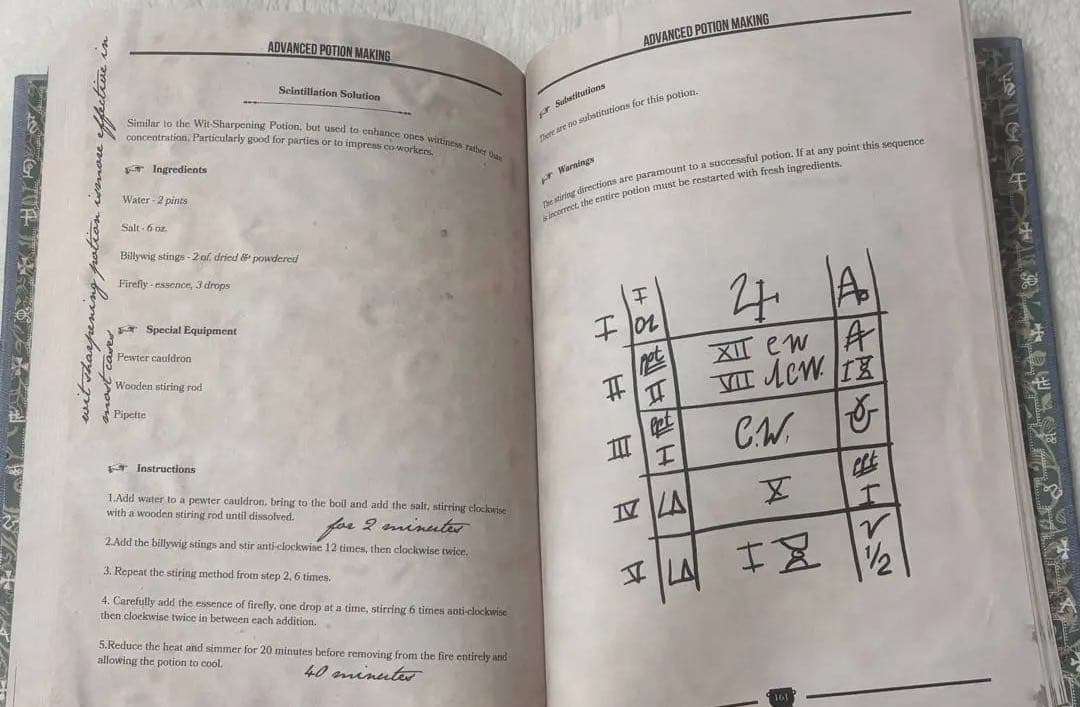 ADVANCED POTION MAKING
Scintillation Solution
Similar to the Wit-Sharpening Potion, but used to enhance ones wittiness rather than
concentration. Particularly good for parties or to impress co-workers.
Ingredients
Water - 2 pints
Salt - 6 oz.
Billywig stings - 2 of, dried & powdered
Firefly - essence, 3 drops
Special Equipment
Pewter cauldron
Wooden stiring rod
Pipette
Instructions
1.Add water to a pewter cauldron, bring to the boil and add the salt, stirring clockwise
with a wooden stiring rod until dissolved.
for 2 minutes
2.Add the billywig stings and stir anti-clockwise 12 times, then clockwise twice.
3. Repeat the stiring method from step 2, 6 times.
4. Carefully add the essence of firefly, one drop at a time, stirring 6 times anti-clockwise
then clockwise twice in between each addition.
5.Reduce the heat and simmer for 20 minutes before removing from the fire entirely and
allowing the potion to cool.
40 minutes
wit sharpening potion is more effective in
most cases
ADVANCED POTION MAKING
Substitutions
There are no substitutions for this potion.
Warnings
The stiring directions are paramount to a successful potion. If at any point this sequence
is incorrect, the entire potion must be restarted with fresh ingredients.
I
I
oz
II
ppt
II
XII CW
VII ACW.
A
III
ppt
I
C.W.
IV
X
ppt
I
V
I
1/2
161